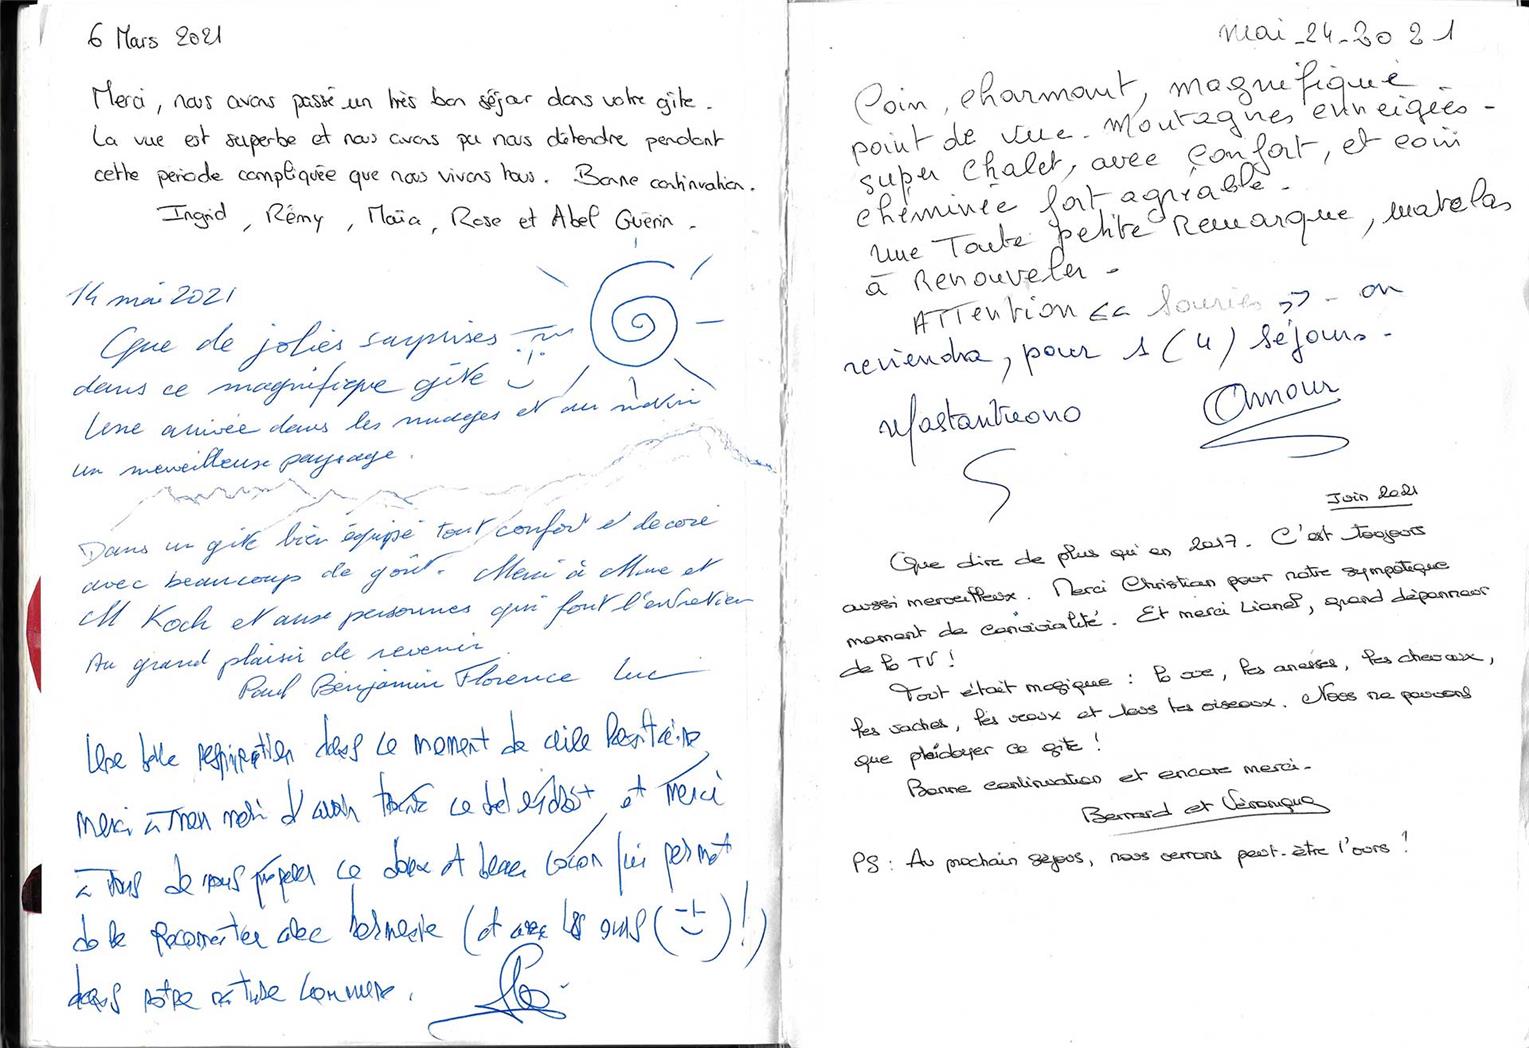 6 Mars 2021
Merci, nous avons passé un très bon séjour dans votre gîte.
La vue est superbe et nous avons pu nous détendre pendant
cette periode compliquée que nous vivons tous. Bonne continuation.
Ingrid, Rémy, Maïa, Rose et Abel Guérin.
14 mai 2021
Que de jolies surprises
dans ce magnifique gîte
Une arrivée dans les nuages et au matin
un merveilleux paysage.
Dans un gîte bien équipé tout confort et decoré
avec beaucoup de goût. Merci à Mme et
M Koch et aux personnes qui font l'entretien
Au grand plaisir de revenir.
Paul Benjamin Florence Luc
Une belle respiration dans ce moment de
merci à mon mari d'avoir ce bel endroit et merci
à vous de nous proposer ce doux et beau cocon qui permet
de se reconnecter avec (et avec les ours ( )!)
dans notre nature commune.
mai-24-2021
Coin, charmant, magnifique
point de vue. Montagnes enneigées -
super chalet, avec confort, et coin
cheminée fort agréable.
une Toute petite Remarque, matelas
à Renouveler -
ATTention << Souries >> - on
reviendra, pour 1 (4) séjours.
Mastantuono Amour
Juin 2021
Que dire de plus qu'en 2017. C'est toujours
aussi merveilleux. Merci Christian pour notre sympatique
moment de convivialité. Et merci Lionel, grand dépanneur
de la TV !
Tout était magique : la vue, les anesses, les chevaux,
les vaches, les veaux et tous les oiseaux. Nous ne pouvons
que plaidoyer ce gite !
Bonne continuation et encore merci.
Bernard et Véronique
PS : Au prochain séjour, nous verrons peut-être l'ours !